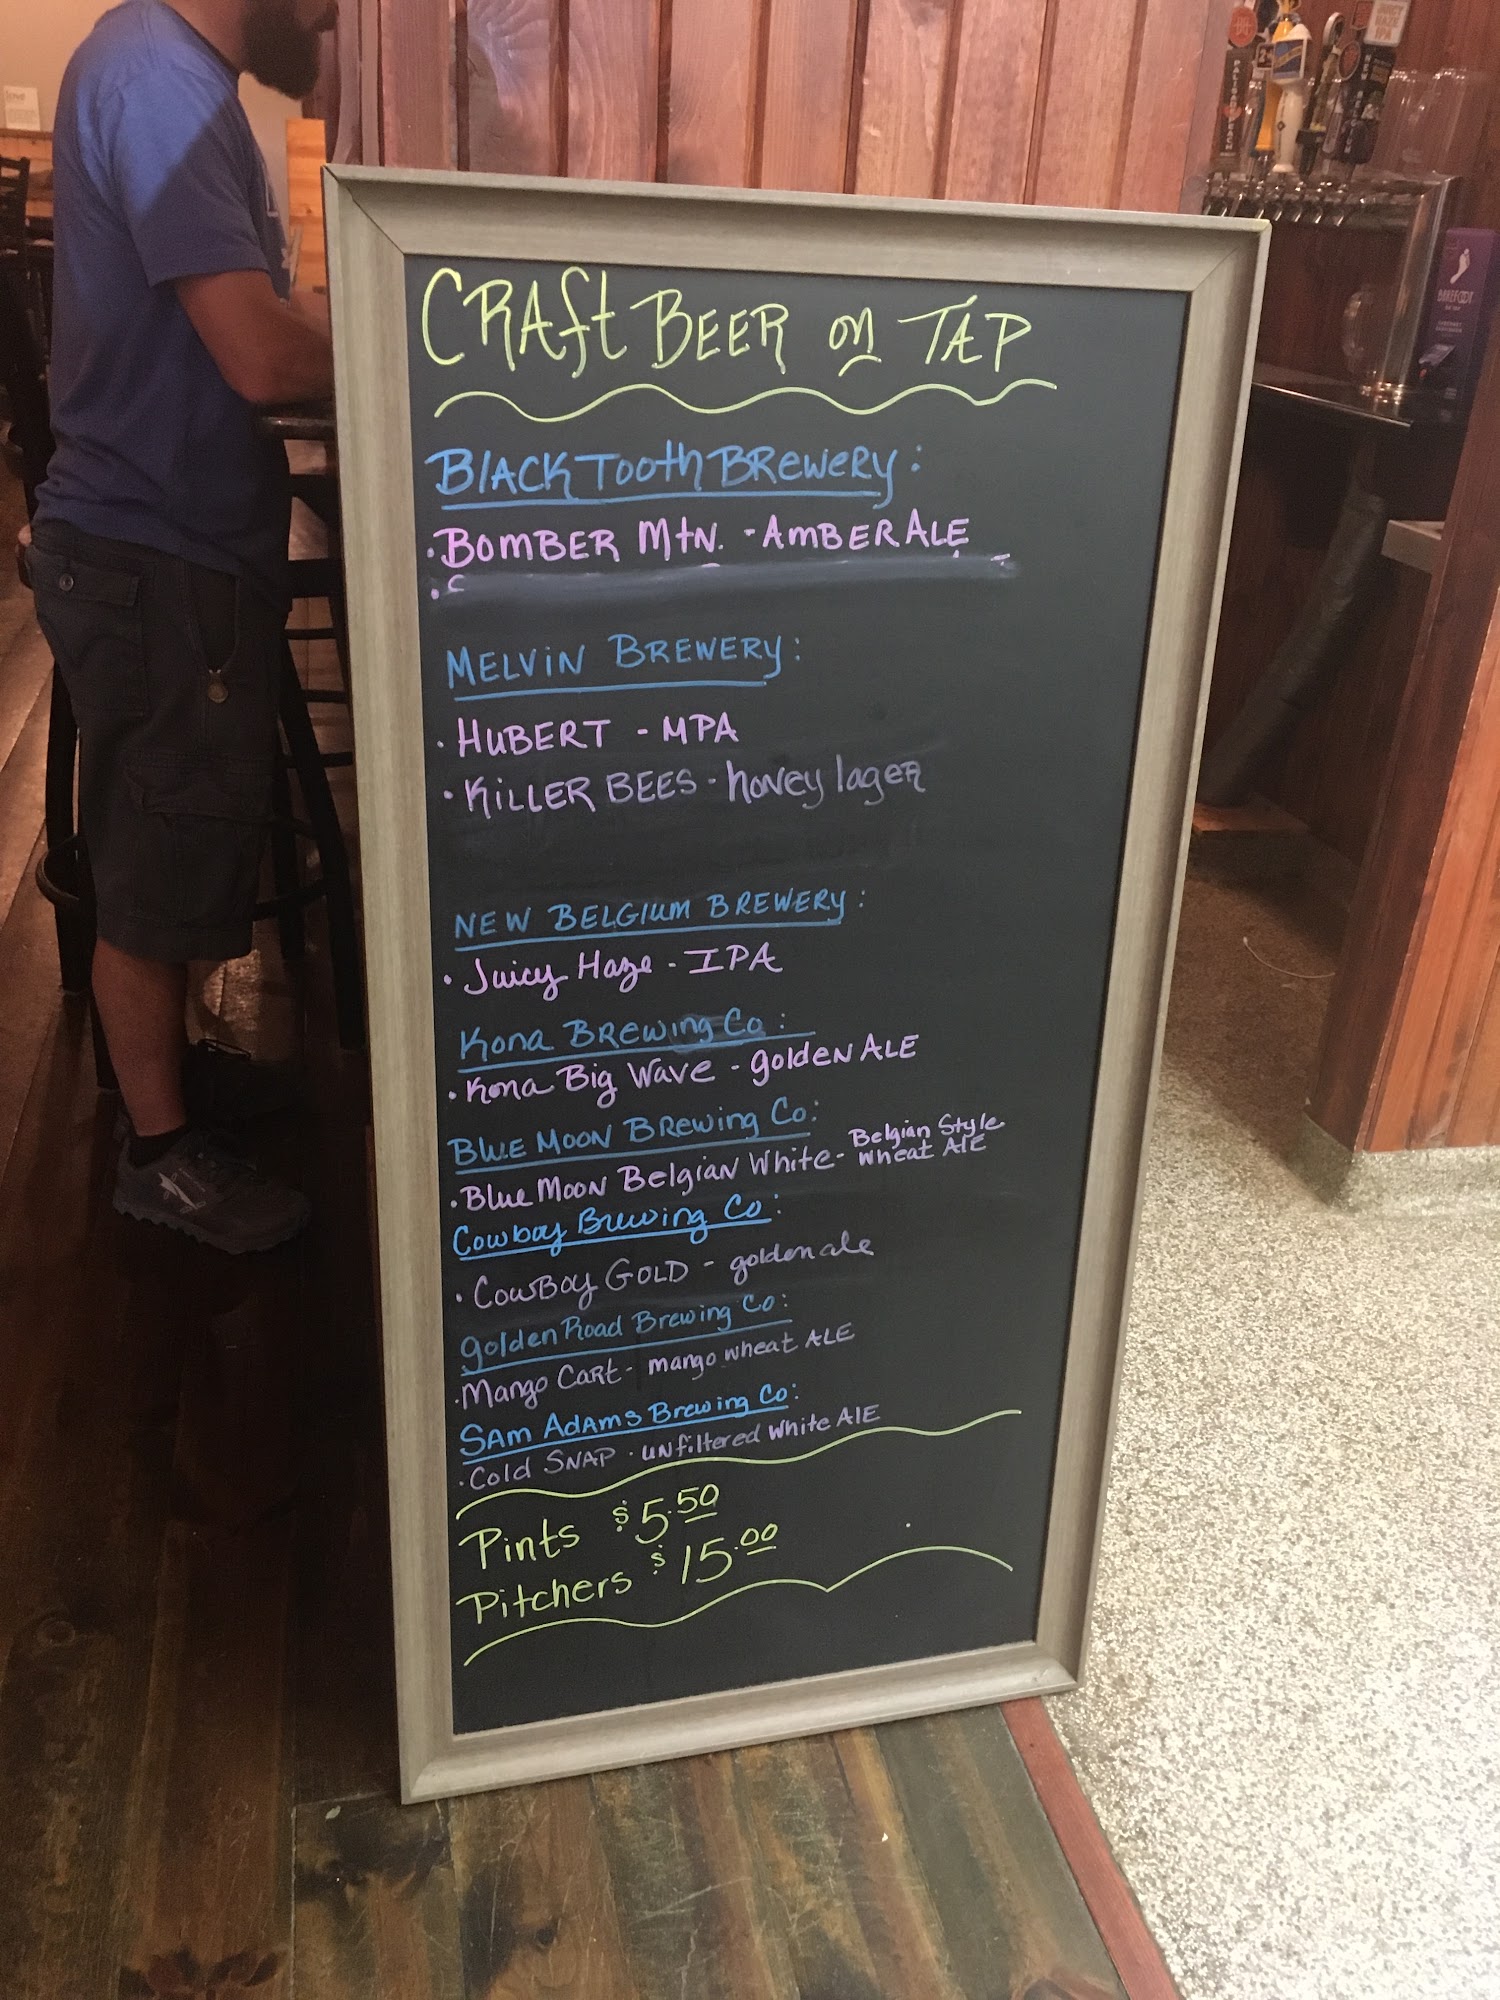 CRAft BEER on TAP
BLACK TOOth BREWERY:
·BOMBER MtN. - AMBER ALE
MELVIN BREWERY:
· HUBERT - MPA
· KILLER BEES - honey lager
NEW BELGIUM BREWERY:
· Juicy Haze - IPA
Kona BREWing Co:
· Kona Big Wave - golden ALE
BLUE MOON BREWing Co:
· Blue MOON Belgian White- Belgian Style
wheat AlE
Cowboy Brewing Co:
· COWBOY GOLD - golden ale
golden Road Brewing Co:
·Mango CARt- mango wheat ALE
SAm ADAMS Brewing Co:
·Cold SNAP · unfiltered White AlE
Pints $5.50
Pitchers $15.00
BAREFOOT